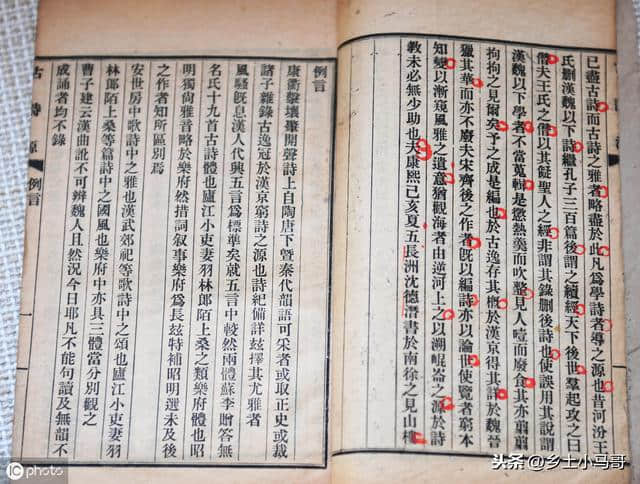 已盡古詩而古詩之雅者略盡於此凡爲學詩者導之源也昔河汾王
氏刪漢魏以下詩繼孔子三百篇後謂之續經天下後世羣起攻之曰
僭夫王氏之僭以其儗聖人之經非謂其錄刪後詩也使誤用其說謂
漢魏以下學者不當蒐輯是懲熱羹而吹整見人噎而廢食其亦翦翦
拘拘之見爾矣予之成是編也於古逸存其概於漢京得其詳於魏晉
獵其華而亦不廢夫宋齊後之作者既以編詩亦以論世使覽者窮本
知變以漸窺風雅之遺意猶觀海者由逆河上之以溯崐崙之源於詩
教未必無少助也夫康熙己亥夏五長洲沈德潛書於南徐之見山樓
例言
康衢擊壤肇開聲詩上自陶唐下暨秦代韻語可采者或取正史或裁
諸子雜錄古逸冠於漢京窮詩之源也詩紀備詳茲擇其尤雅者
風騷既息漢人代興五言爲標準矣就五言中較然兩體蘇李贈答無
名氏十九首古詩體也廬江小吏妻羽林郎陌上桑之類樂府體也昭
明獨尚雅音略於樂府然措詞叙事樂府爲長茲特補昭明選未及後
之作者知所區別焉
安世房中歌詩中之雅也漢武郊祀等歌詩中之頌也廬江小吏妻羽
林郎陌上桑等篇詩中之國風也樂府中亦具三體當分別觀之
曹子建云漢曲訛不可辨魏人且然況今日耶凡不能句讀及無韻不
成誦者均不錄
古詩源 例言 一
photo
头条@乡土小马哥